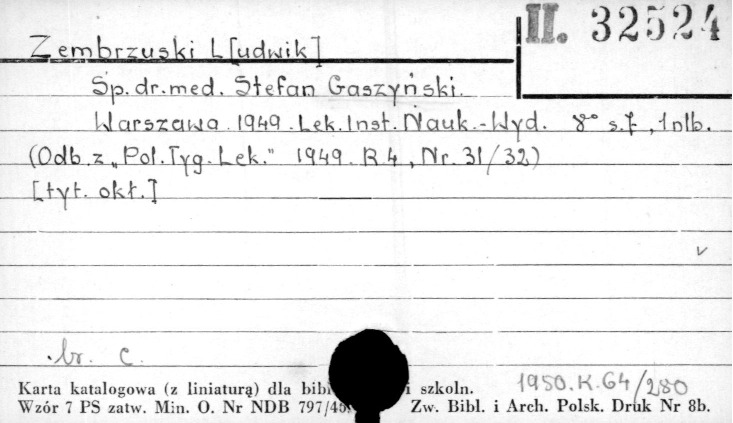 II. 32524
Zembrzuski L[udwik]
Śp. dr. med. Stefan Gaszyński.
Warszawa 1949. Lek. Inst. Nauk.-Wyd. 8° s. 7, 1 nlb.
(Odb. z „Pol. Tyg. Lek." 1949. R 4, Nr. 31/32)
[tyt. okł.]
br. c.
1950.K.64/280
Karta katalogowa (z liniaturą) dla i szkoln.
Wzór 7 PS zatw. Min. O. Nr NDB Zw. Bibl. i Arch. Polsk. Druk Nr 8b.